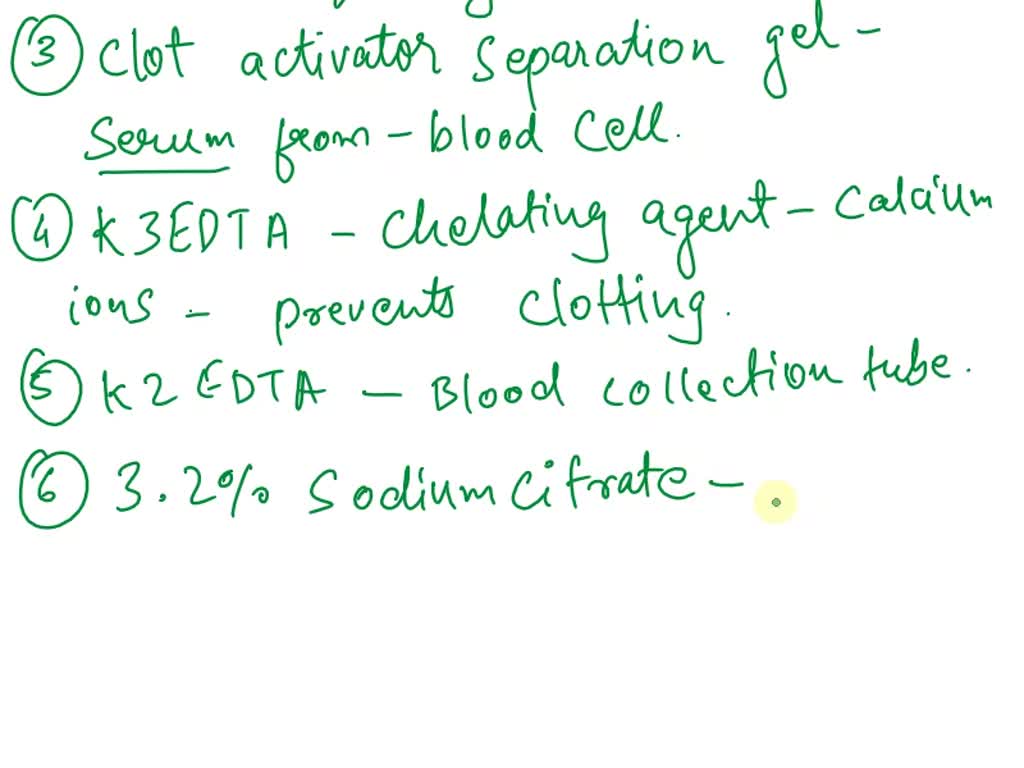 ③ Clot activator separation gel -
Serum from - blood cell.
④ K3EDTA - Chelating agent - calcium
ions - prevents clotting.
⑤ K2 EDTA - Blood collection tube.
⑥ 3.2% Sodium citrate -